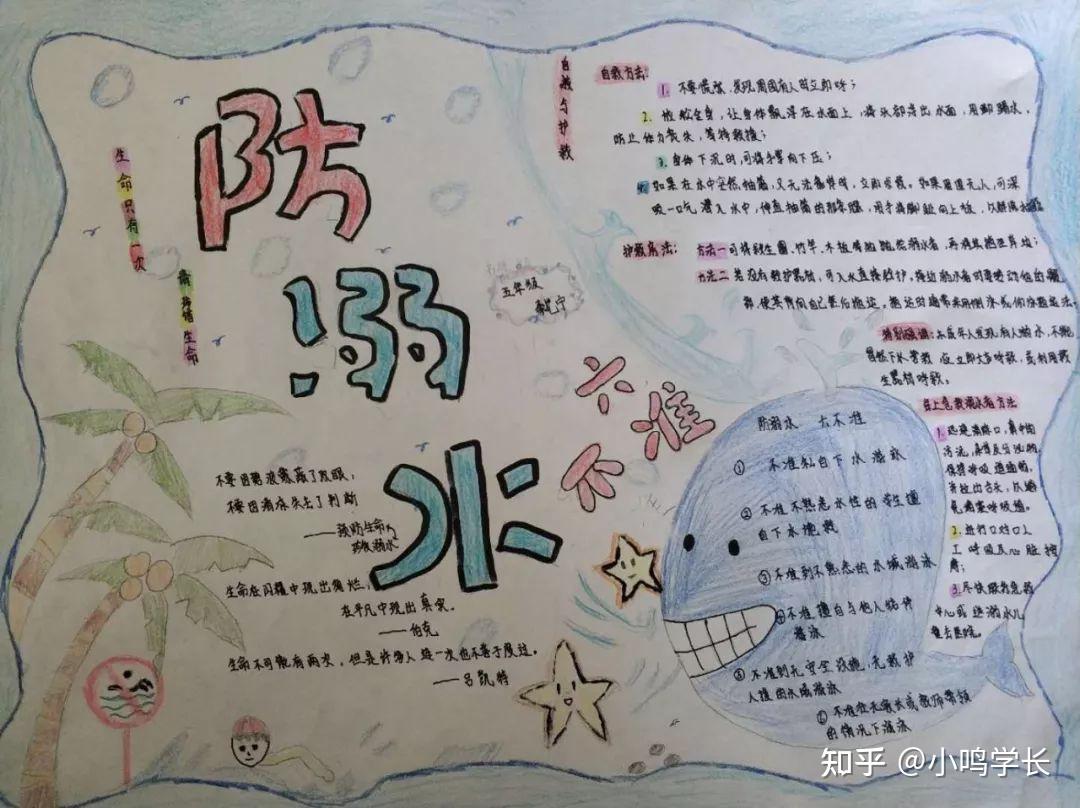 防
溺
水
六
不
准
生命只有一次
五年级
不要因碧波
——预防生命
珍惜溺水
生命在闪耀中现出绚烂，
在平凡中现出真实。
——伯克
生命不可能有两次，但是许多人连一次也不善于度过。
——吕凯特
自救与护救
自救方法：
1. 不要慌张，发现周围有人时立即呼；
2. 放松全身，让身体飘浮在水面上，将头部浮出水面，用脚踢水，
防止体力丧失，等待救援；
3. 身体下沉时，可将手掌向下压；
4. 如果在水中突然抽筋，又无法靠岸时，立即求救。如果周围无人，可深
吸一口气潜入水中，伸直抽筋的那条腿，用手将脚趾向上扳，以解
方法一 可将救生圈、竹竿、木板等抛给溺水者，再将其拖至岸边；
方法二 若没有救护器材，可入水直接救护。接近溺水者时要转动他的髋
部，使其背向自己然后拖运。拖运时通常采用侧泳或仰泳拖运法。
特别强调：未成年人发现有人溺水，不能
冒然下水营救，应立即大声呼救，或利用救
生器材呼救。
岸上急救溺水者方法
2. 进行口对口人
工呼吸及心脏按
3. 尽快
防溺水 六不准
① 不准私自下水游泳
② 不准不熟悉水性的学生擅
自下水施救
③ 不准到不熟悉的水域游泳
④ 不准擅自与他人结伴
游泳
⑤ 不准到无安全设施、无救护
人援的水域游泳
⑥ 不准在无家长或教师带领
的情况下游泳
知乎 @小鸣学长